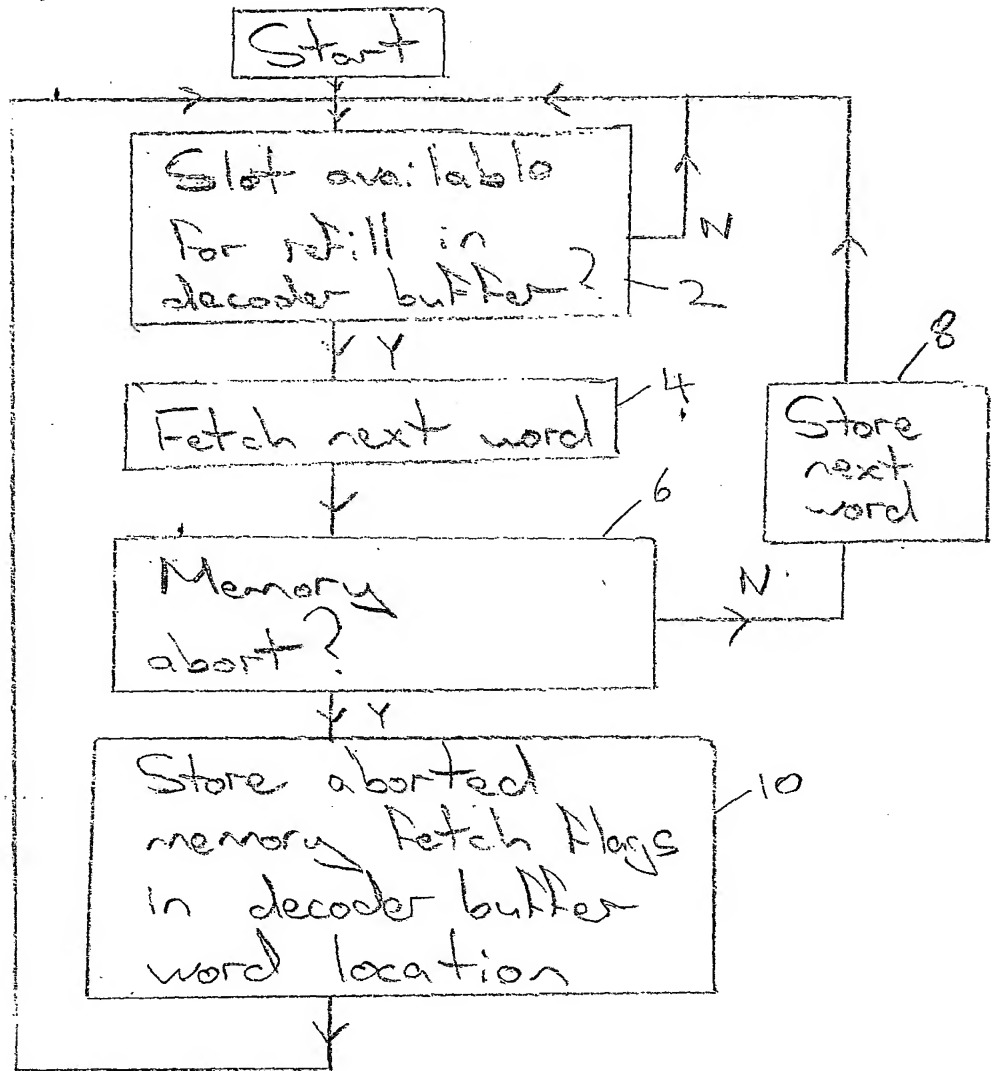 Start
Slot available
for refill in
decoder buffer?
N
2
Y
Fetch next word
4
Memory
abort?
6
N
Store
next
word
8
Y
Store aborted
memory fetch flags
in decoder buffer
word location
10